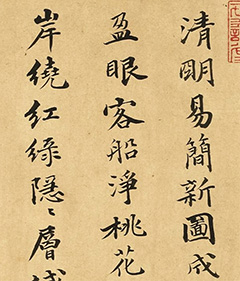 清明易簡新圖成
盈眼客船淨桃花
岸繞紅綠隱〻層